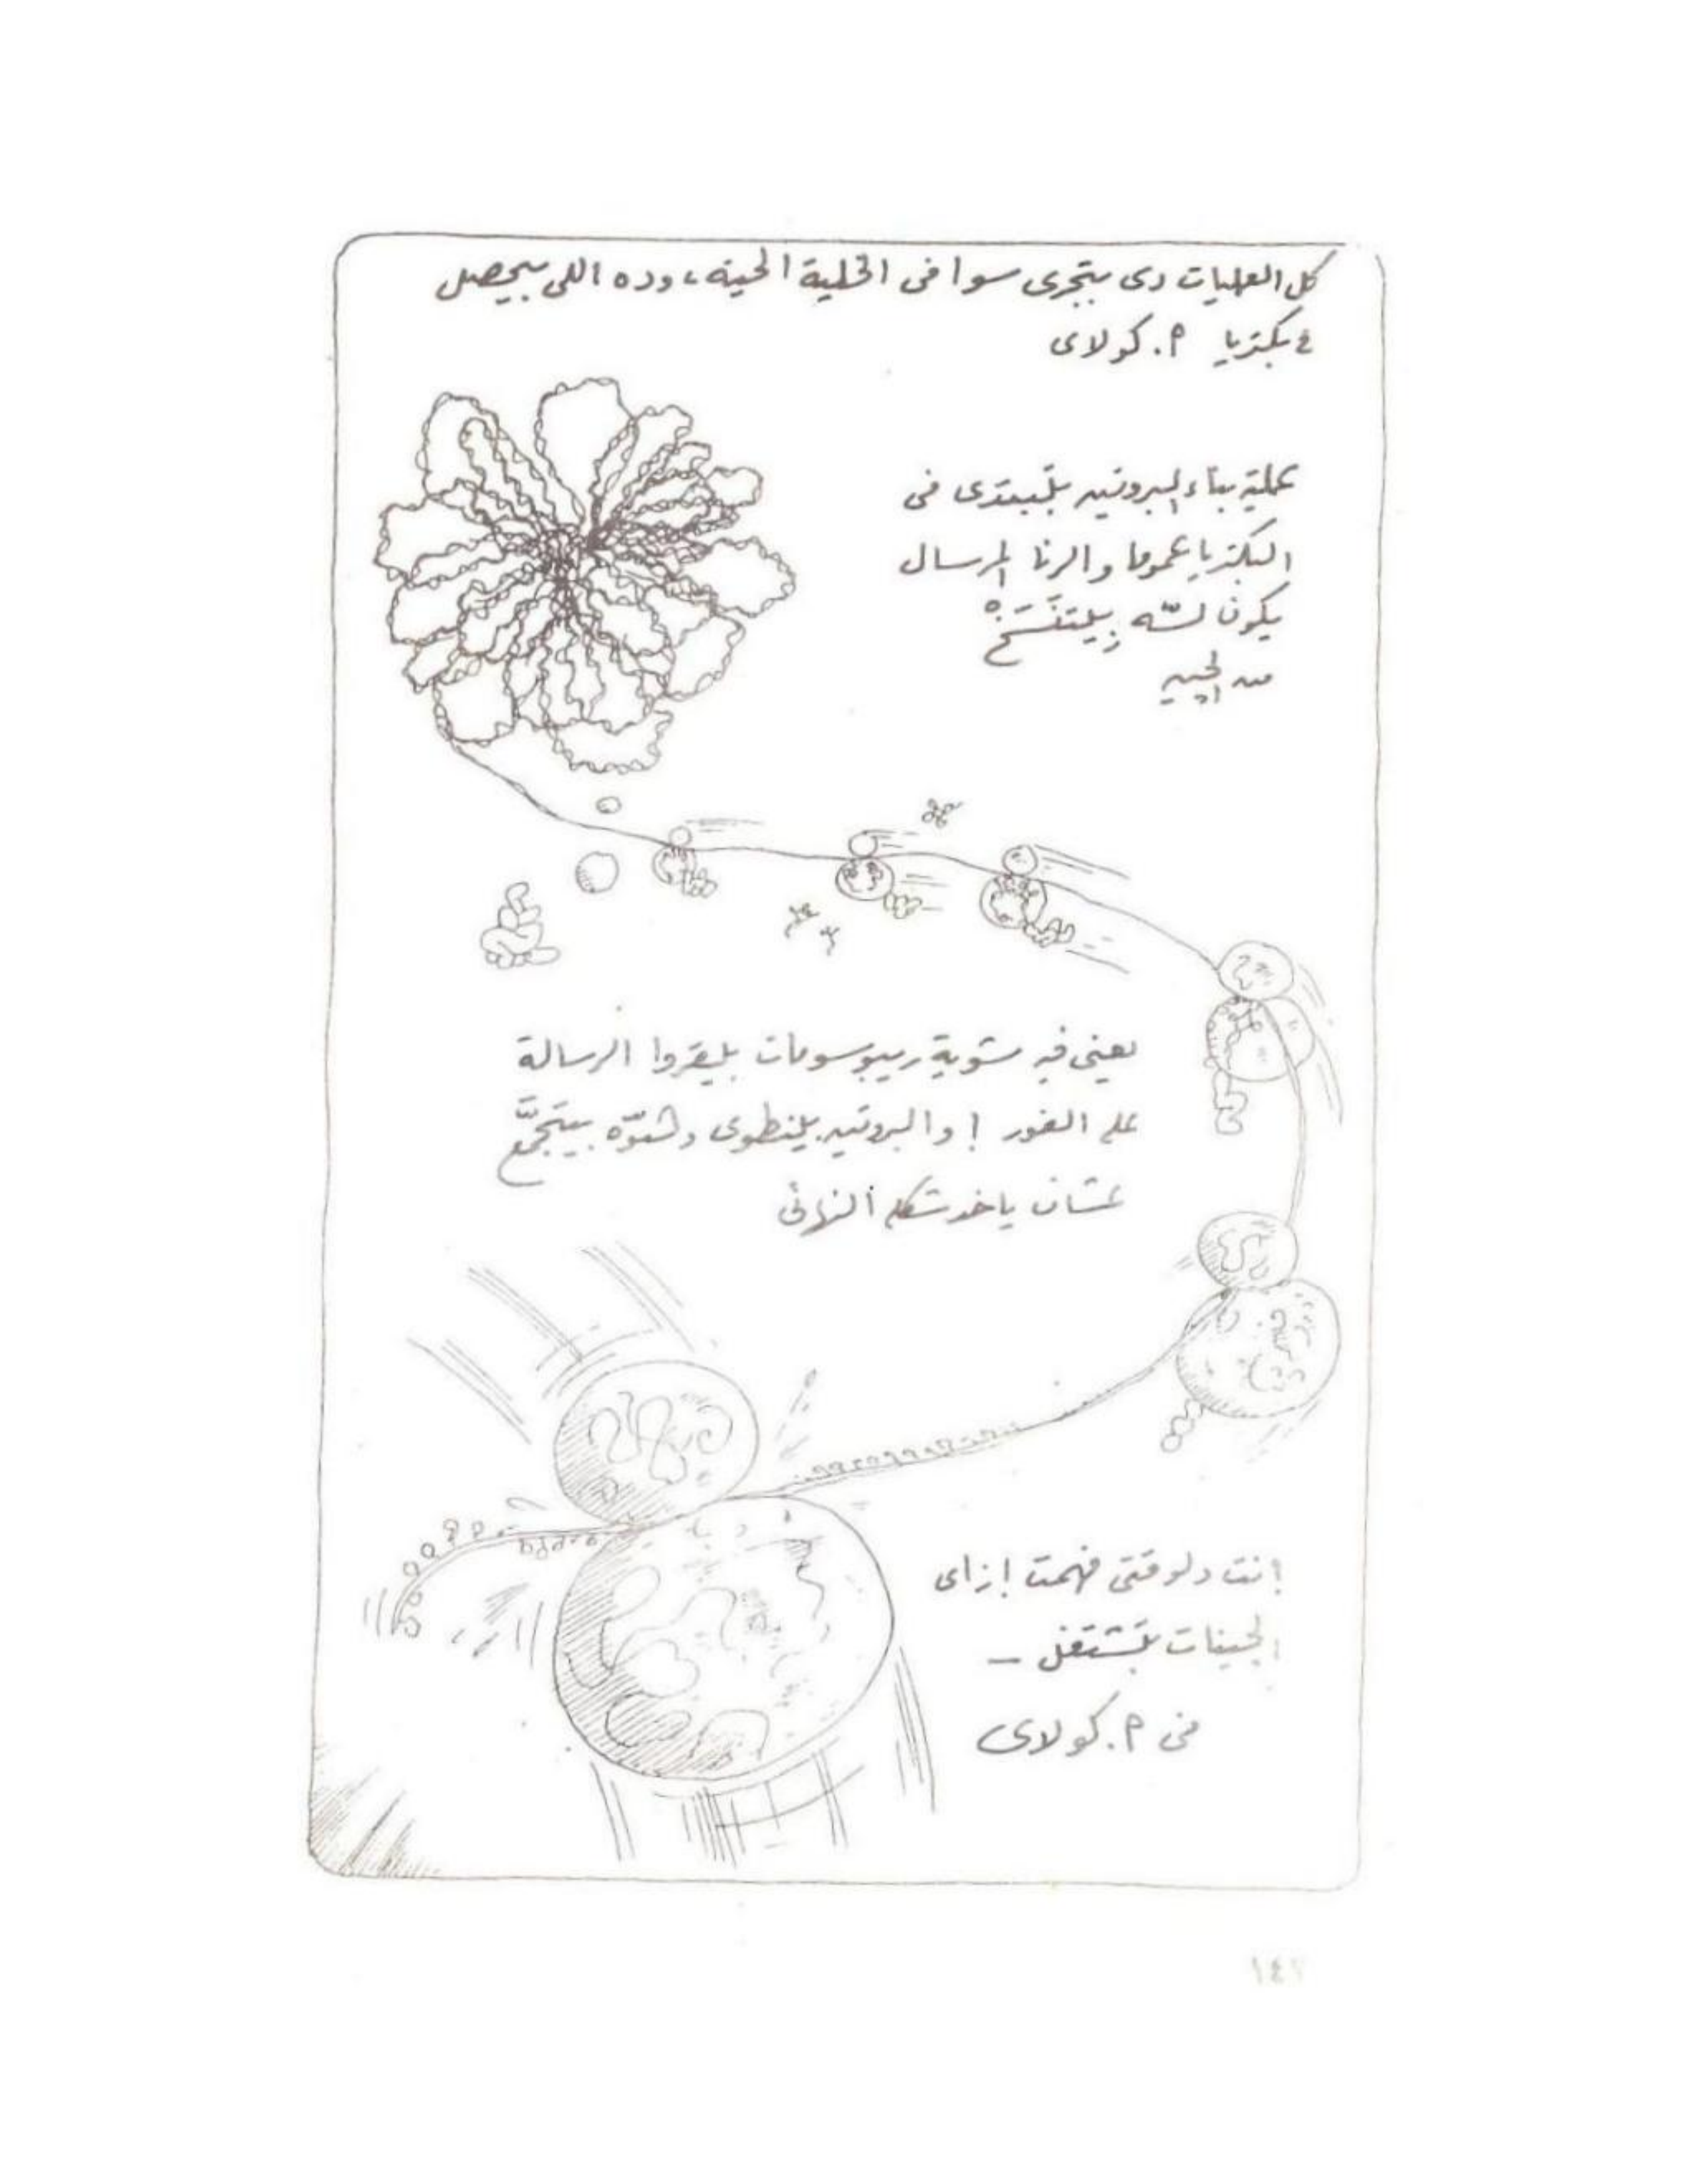 كل العمليات دى بتجرى سوا فى الخلية الحية، وده اللى بيحصل
ع بكتريا م. كولاى
عملية بناء البروتين بتبتدى فى
البكتريا عموما والرنا المرسال
يكون لسّه بيتنَسَخْ
من الچين
يعنى فيه شوية ريبوسومات بيقروا الرسالة
على الفور! والبروتين بينطوى وشوّه بيتجمَّع
عشان ياخد شكله النهائى
إنت دلوقتى فهمت إزاى
الچينات بتشتغل –
فى م. كولاى
١٤٢